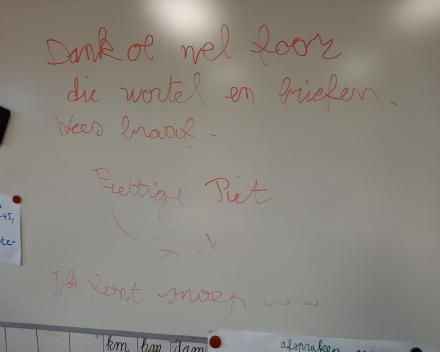 Dank ol vel foor
die wortel en briefen.
Wees braaf.
Prettige Piet
Ik komt snoep
-45,
te-
km hm dam
afspraken